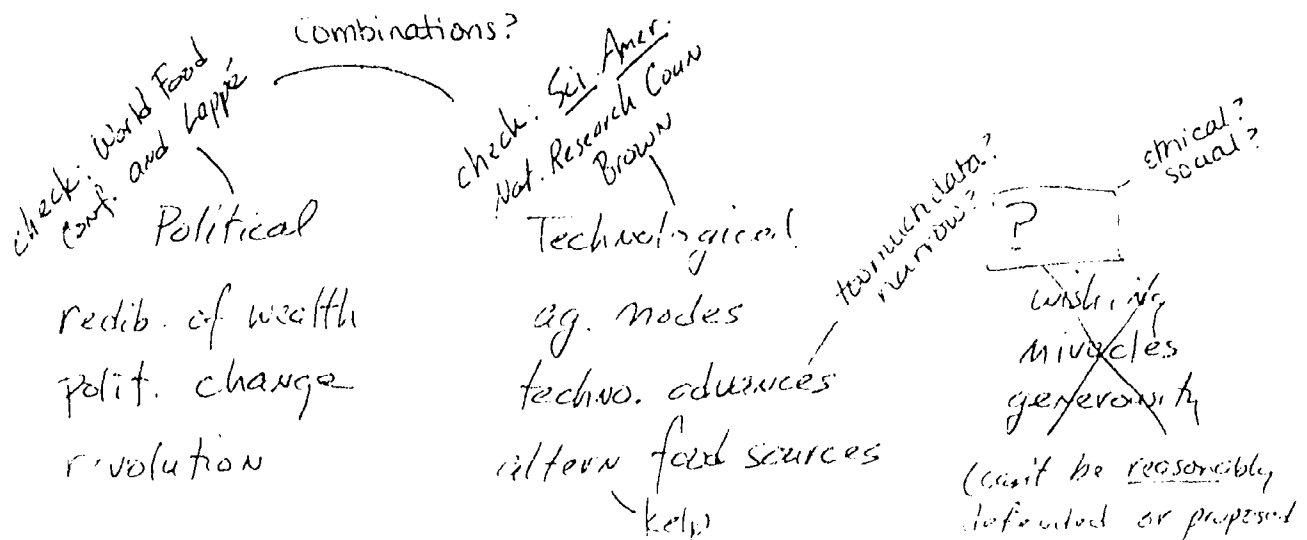 Combinations?
check: World Food
Conf. and Lappé
Political
redib. of wealth
polit. change
revolution
check: Sci. Amer.
Nat. Research Coun
Brown
Technological
ag. modes
techno. advances
altern food sources
kelp
too much data?
narrow?
?
ethical?
social?
wishing
miracles
generosity
(can't be reasonably
defended or proposed